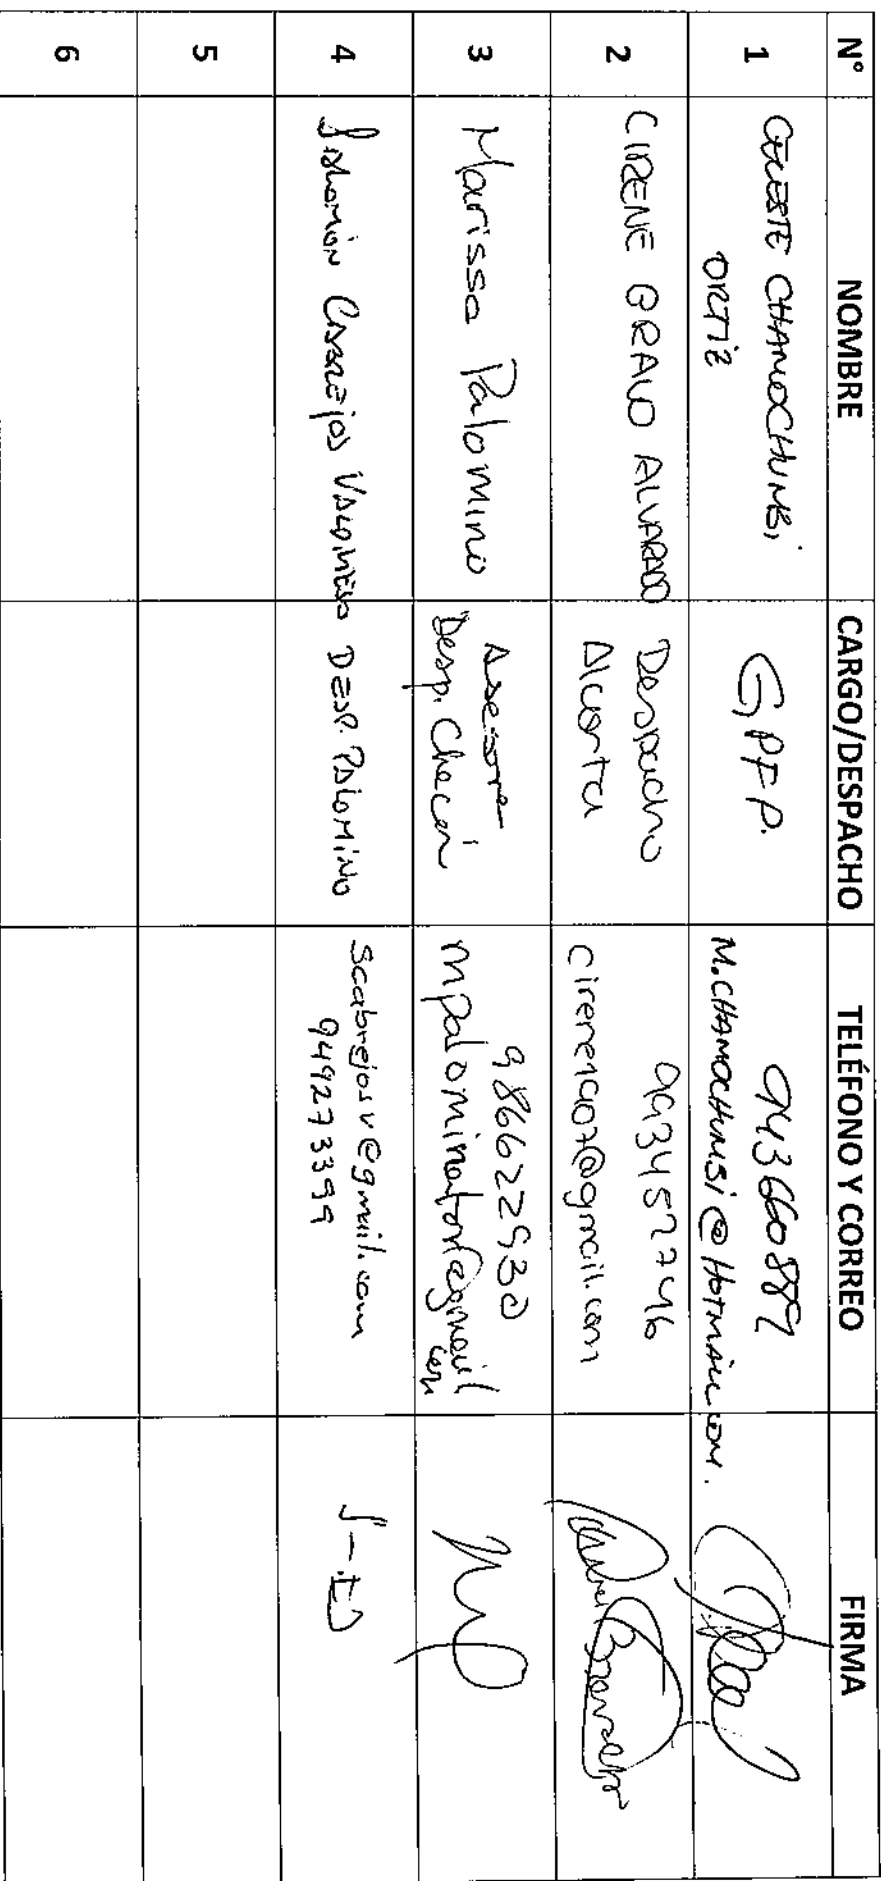 N° NOMBRE CARGO/DESPACHO TELÉFONO Y CORREO FIRMA
1
CELESTE CHAMOCHUMBi
ORTiZ
GPFP.
943660889
M.CHAMOCHUMBi@HOTMAIL.COM.
2
CIRENE BRAVO ALVARADO
Despacho
Alcorta
993452746
cirene1907@gmail.com
3
Marissa Palomino
Asesora
Desp. Checa
986622930
@gmail
com
4
Cabrejos DESP. PALOMiNO
scabrejosv@gmail.com
949273399
5
6